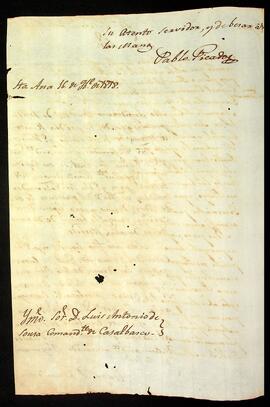 Su Atento Servidor, y de besar
las Manos
Pablo Picado
Sta Ana 16 de 1818.
Ymo. Sor. D. Luis Antonio de
Sousa Comandte de Casalbasco